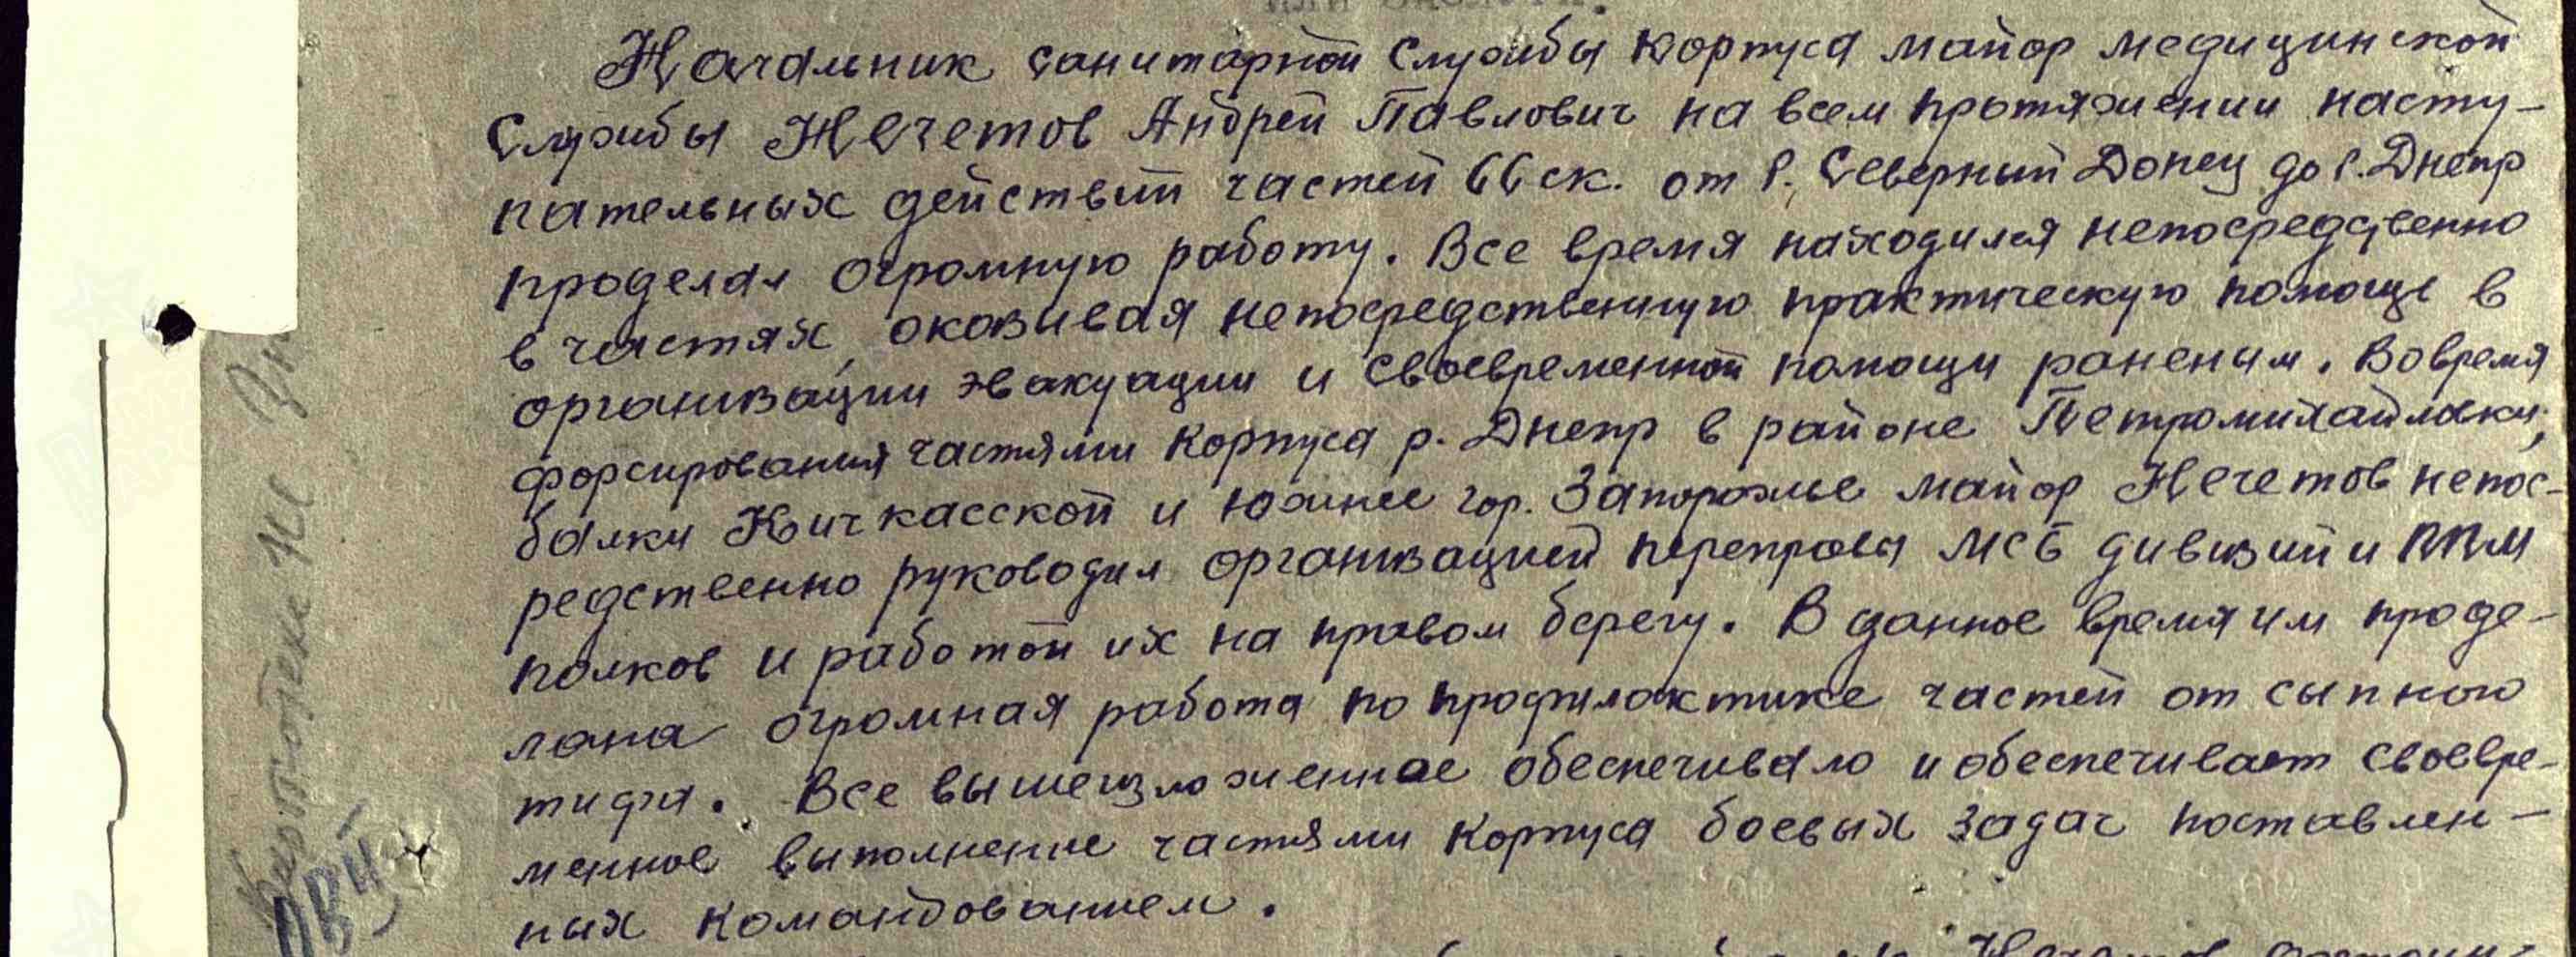 Начальник санитарной службы корпуса майор медицинской
службы Нечетов Андрей Павлович на всем протяжении насту-
пательных действий частей 66 ск. от р. Северный Донец до р. Днепр
проделал огромную работу. Все время находился непосредственно
в частях, оказывая непосредственную практическую помощь в
организации эвакуации и своевременной помощи раненым. Вовремя
форсирования частями корпуса р. Днепр в районе Петромихайловки,
балки Кичкасской и южнее гор. Запорожье майор Нечетов непос-
редственно руководил организацией переправы МСБ дивизий и ППМ
полков и работой их на правом берегу. В данное время им проде-
лана огромная работа по профилактике частей от сыпного
тифа. Все вышеизложенное обеспечивало и обеспечивает своевре-
менное выполнение частями корпуса боевых задач поставлен-
ных командованием.
Нечетов